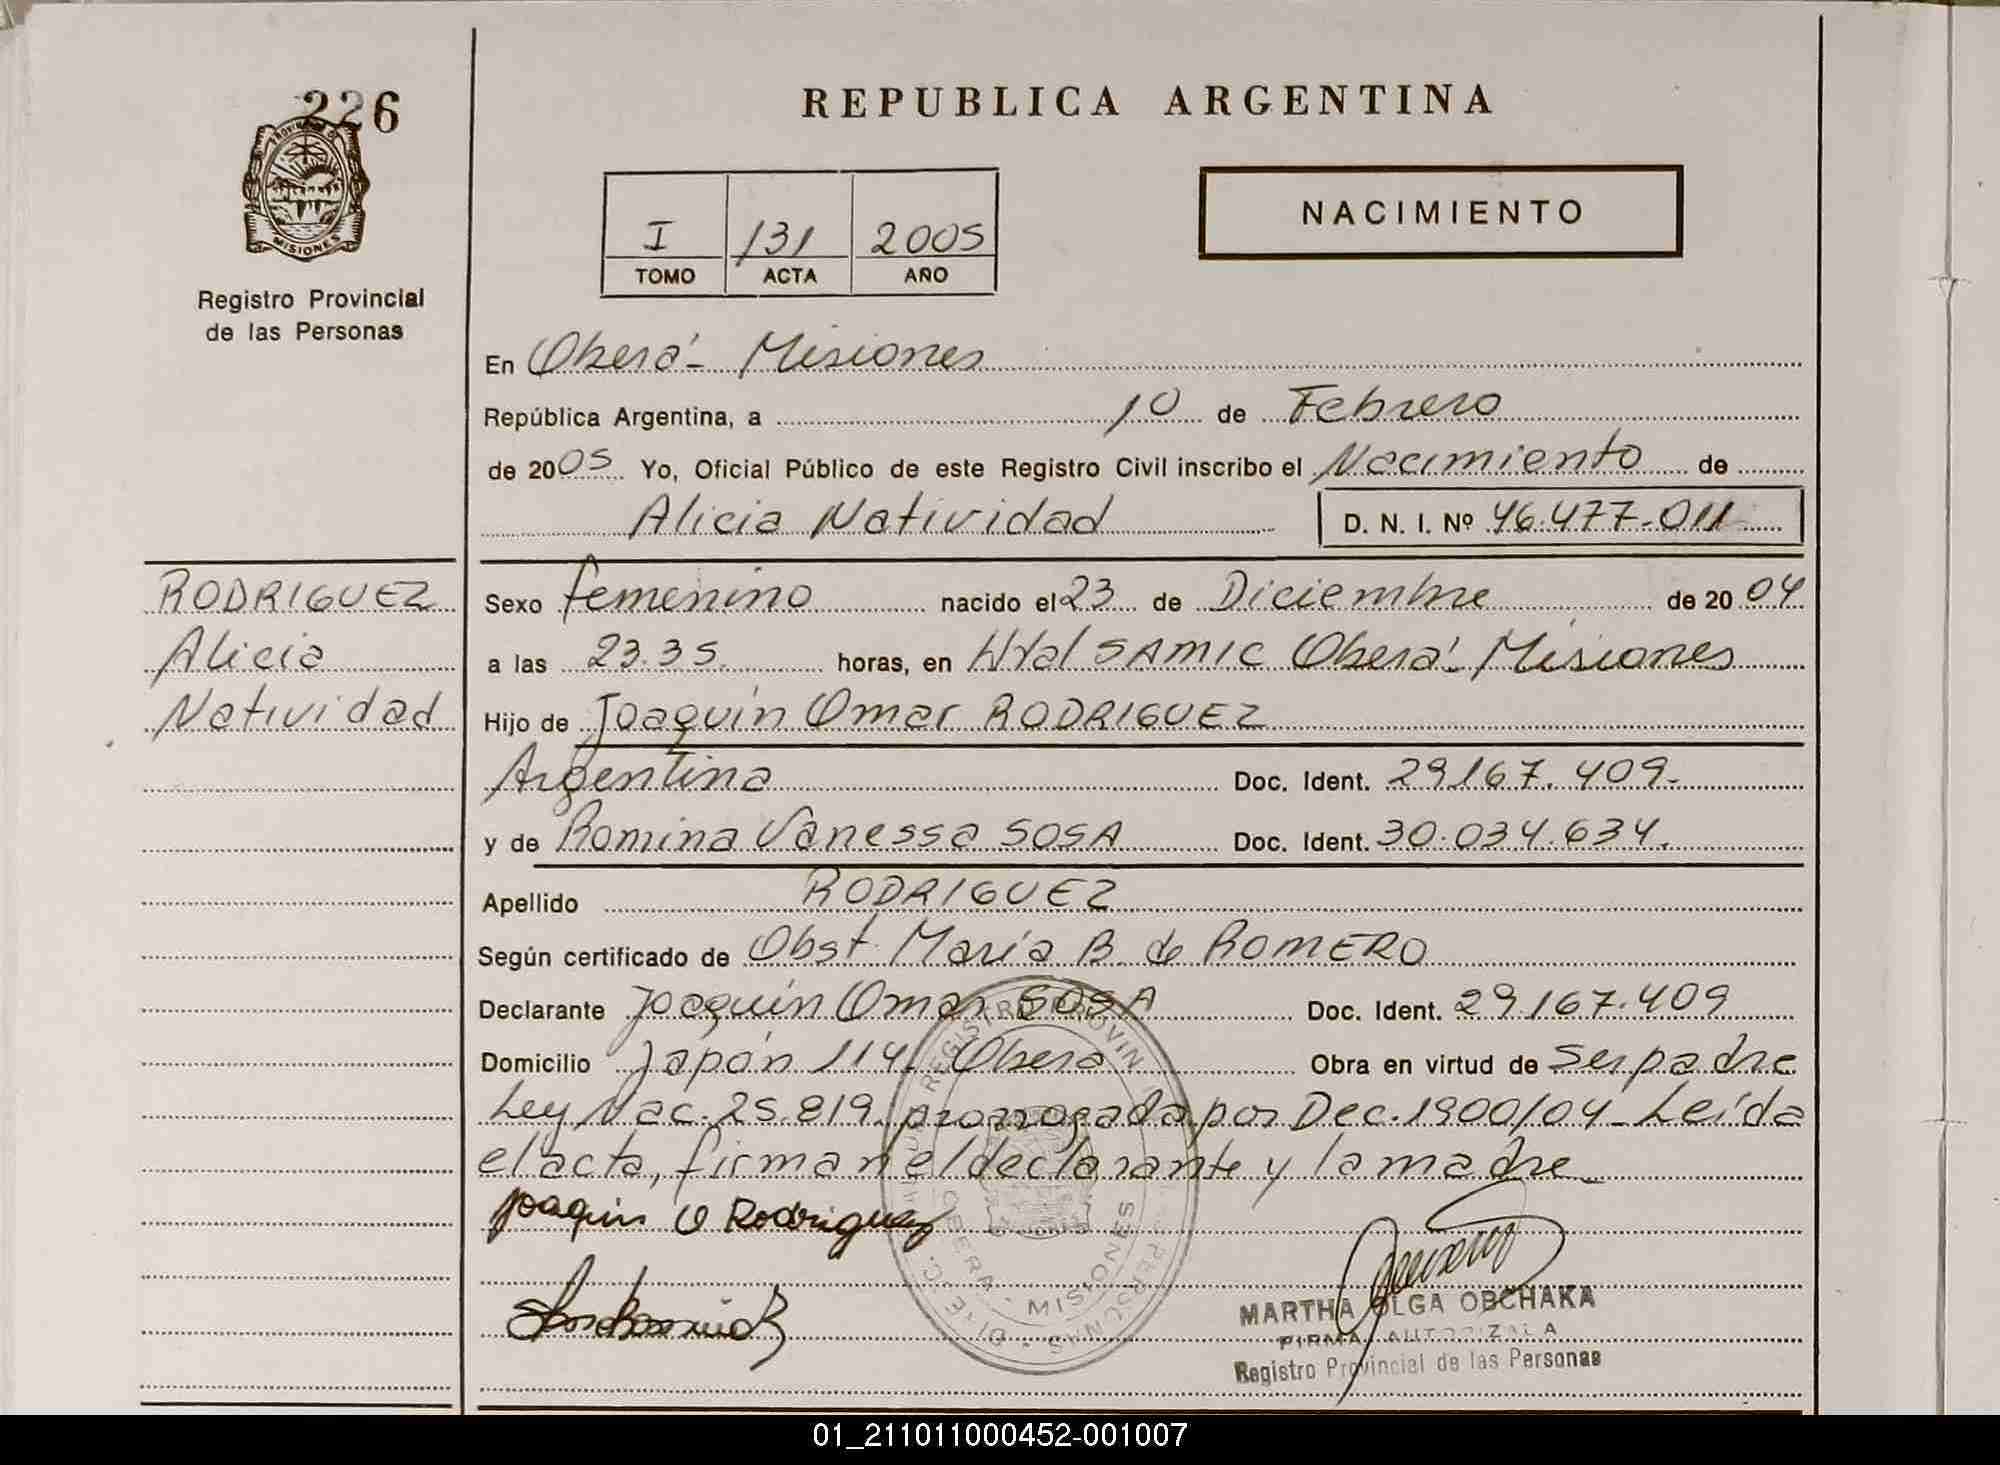 226
PROVINCIA DE
MISIONES
Registro Provincial
de las Personas
REPUBLICA ARGENTINA
I 131 2005
TOMO ACTA AÑO
NACIMIENTO
En Oberá - Misiones
República Argentina, a 10 de Febrero
de 2005 Yo, Oficial Público de este Registro Civil inscribo el Nacimiento de
Alicia Natividad D. N. I. Nº 46.477.011
RODRIGUEZ
Alicia
Natividad
Sexo femenino nacido el 23 de Diciembre de 2004
a las 23.35. horas, en SAMIC Oberá - Misiones
Hijo de Joaquín Omar RODRIGUEZ
Argentina Doc. Ident. 29.167.409.-
y de Romina Vanessa SOSA Doc. Ident. 30.034.634.
Apellido RODRIGUEZ
Según certificado de Obst. María B. de ROMERO
Declarante Joaquín Omar SOSA Doc. Ident. 29.167.409
Domicilio Japón 114 Oberá Obra en virtud de ser padre
Ley Nac. 25.819. prorrogada por Dec. 1900/04 - Leída
el acta, firman el declarante y la madre.
Joaquin O Rodriguez
OBERA - MISIONES
MARTHA OLGA OBCHAKA
FIRMA AUTORIZADA
Registro Provincial de las Personas
01_211011000452-001007